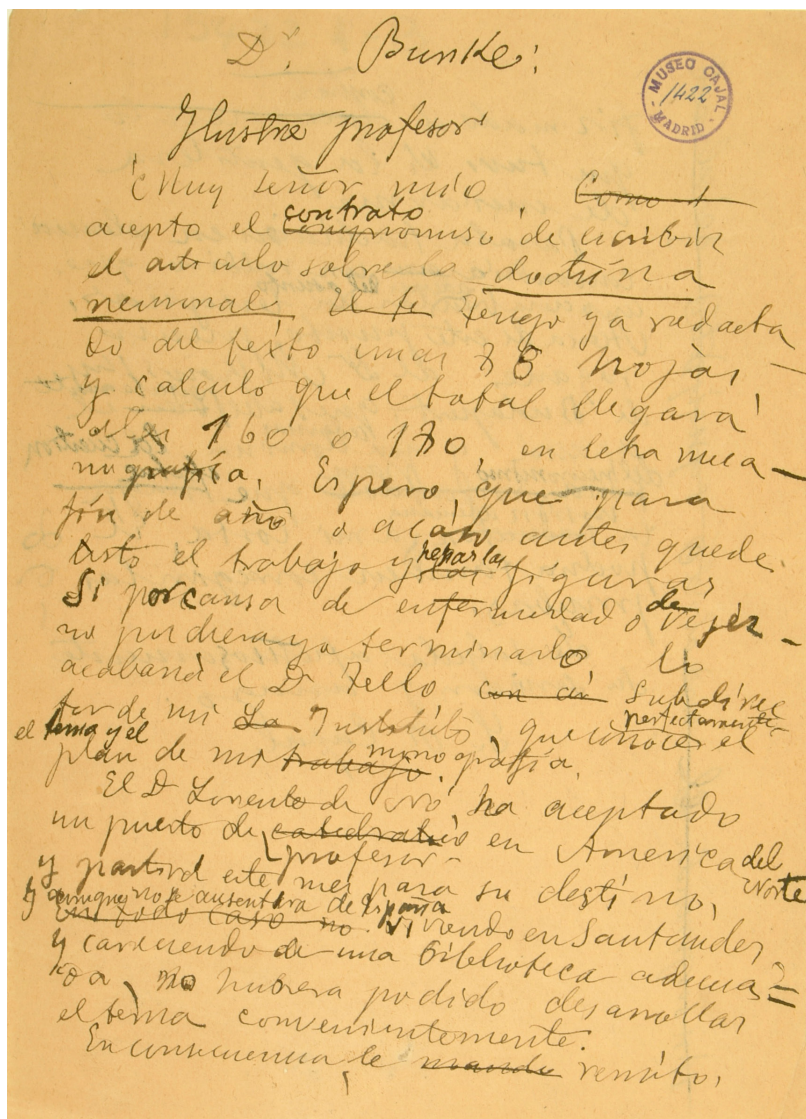 Dr. Bunke:
MUSEO CAJAL
1422
MADRID
Ilustre profesor
Muy señor mio. Como
contrato
acepto el compromiso de escribir
el articulo sobre la doctrina
neuronal. El te Tengo ya redacta
do del texto unas 78 hojas
y calculo que el total llegará
a 160 o 170, en letra meca-
nografía. Espero que para
fin de año o acaso antes quede
listo el trabajo y hechas las figuras
Si por causa de enfermedad o de vejez
no pudiera yo terminarlo, lo
acabaria el Dr Tello con subdirec
tor de mi La Instituto, que conoce el
perfectamente
el tema y el
plan de mi trabajo monografía.
El Dr Lorente de Nó ha aceptado
un puesto de catedratico en America del
Norte
profesor
y partirá este mes para su destino,
y aunque no se ausentara de España
En todo caso no viviendo en Santander
y careciendo de una biblioteca adecua=
da, no hubiera podido desarrollar
el tema convenientemente.
En consecuencia le mando remito,